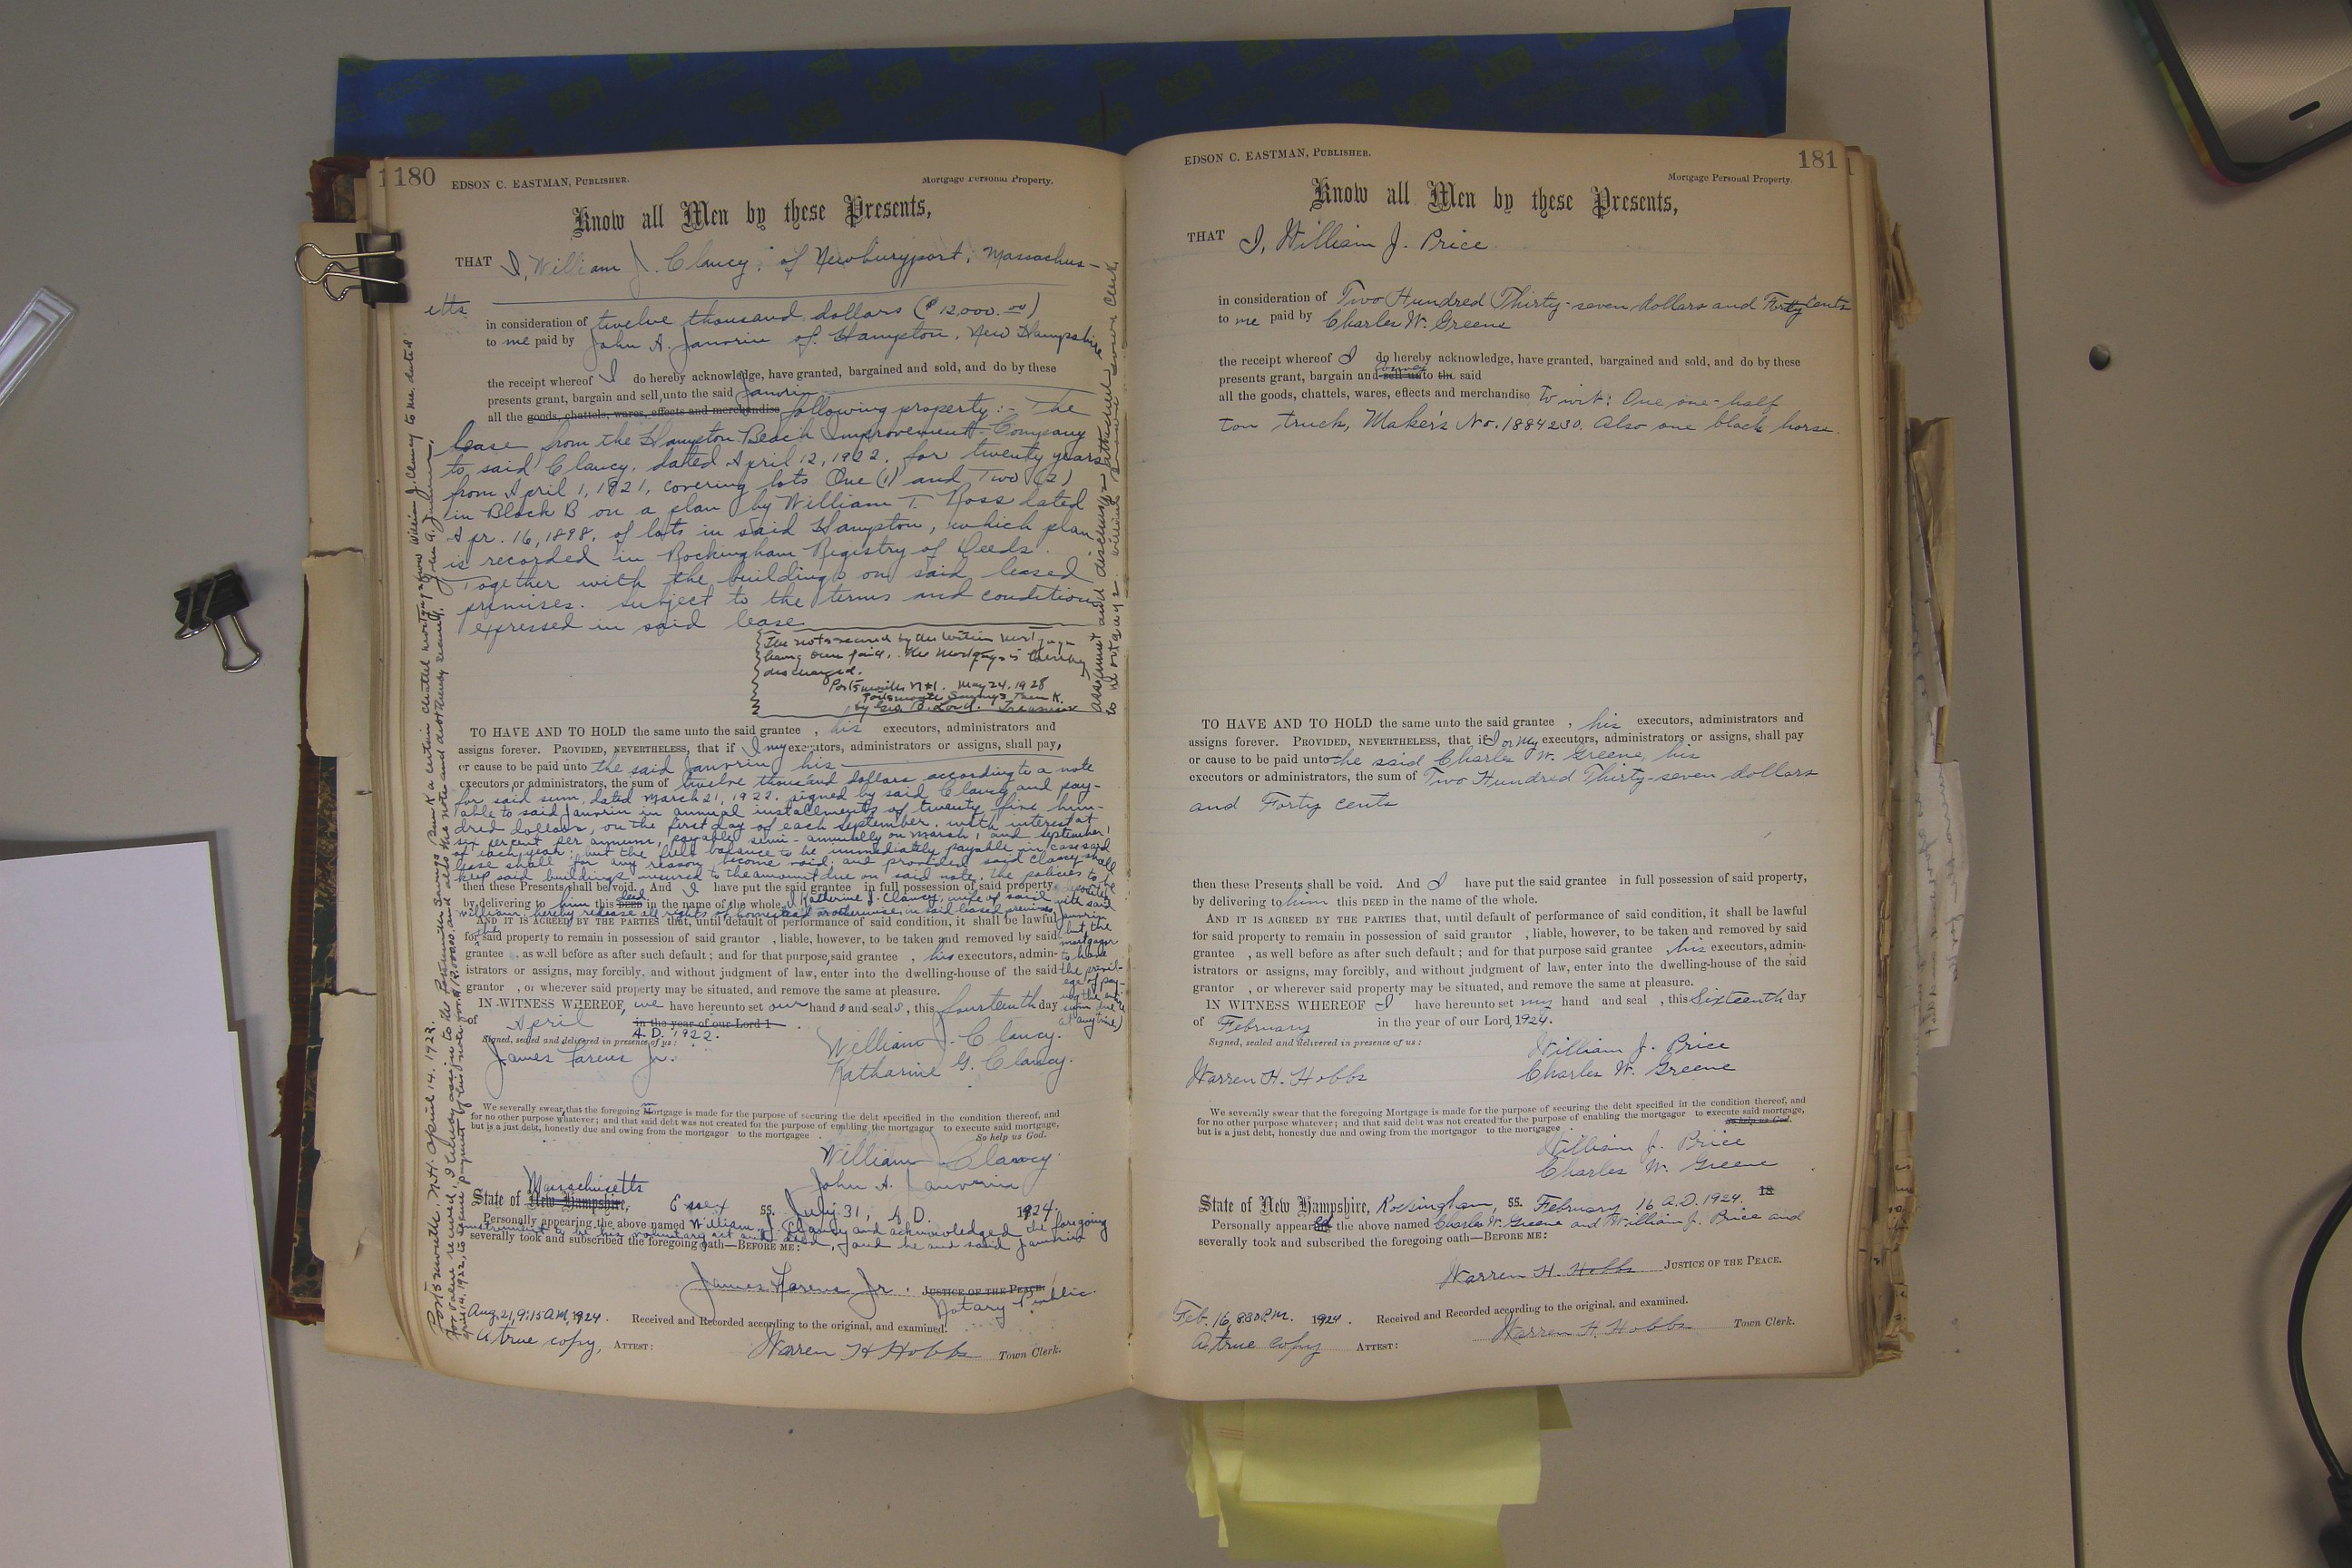 180
EDSON C. EASTMAN, PUBLISHER.
Mortgage Personal Property.
Know all Men by these Presents,
THAT I, William J. Clancy, of Newburyport, Massachus-
etts
in consideration of twelve thousand dollars ($12,000.00)
to me paid by John A. Janvrin of Hampton, New Hampshire
the receipt whereof I do hereby acknowledge, have granted, bargained and sold, and do by these
presents grant, bargain and sell, unto the said Janvrin
all the goods, chattels, wares, effects and merchandise following property:- The
lease from the Hampton Beach Improvement Company
to said Clancy, dated April 12, 1922, for twenty years
from April 1, 1921, covering lots One (1) and Two (2)
in Block B on a plan by William T. Ross dated
Apr. 16, 1898, of lots in said Hampton, which plan
is recorded in Rockingham Registry of Deeds.
Together with the buildings on said leased
premises. Subject to the terms and conditions
expressed in said lease
The note secured by the within mortgage
having been paid, the mortgage is hereby
discharged.
Portsmouth N.H. May 24, 1928
Portsmouth Savings Bank
by Treasurer
TO HAVE AND TO HOLD the same unto the said grantee , his executors, administrators and
assigns forever. PROVIDED, NEVERTHELESS, that if I my executors, administrators or assigns, shall pay,
or cause to be paid unto the said Janvrin his
executors or administrators, the sum of twelve thousand dollars according to a note
for said sum, dated March 21, 1922, signed by said Clancy and pay-
able to said Janvrin in annual installments of twenty five hun-
dred dollars, on the first day of each September, with interest at
six percent per annum, payable semi-annually on March 1 and September 1
of each year; but the full balance to be immediately payable in case said
lease shall for any reason become void; and provided said Clancy shall
keep said buildings insured to the amount due on said note, the policies to be
deposited
with said
Janvrin
but the
mortgagor
to have
the privil-
ege of pay-
ing the whole
sum due
at any time)
then these Presents shall be void. And I have put the said grantee in full possession of said property
by delivering to him this DEED deed in the name of the whole. I Katherine J. Clancy, wife of said
William, hereby release all rights of homestead or otherwise, in said leased premises
AND IT IS AGREED BY THE PARTIES that, until default of performance of said condition, it shall be lawful
for the said property to remain in possession of said grantor , liable, however, to be taken and removed by said
grantee , as well before as after such default; and for that purpose, said grantee , his executors, admin-
istrators or assigns, may forcibly, and without judgment of law, enter into the dwelling-house of the said
grantor , or wherever said property may be situated, and remove the same at pleasure.
IN WITNESS WHEREOF, we have hereunto set our hands and seals, this fourteenth day
of April in the year of our Lord 1
A. D. 1922.
Signed, sealed and delivered in presence of us:
William J. Clancy.
Katharine G. Clancy.
We severally swear, that the foregoing Mortgage is made for the purpose of securing the debt specified in the condition thereof, and
for no other purpose whatever; and that said debt was not created for the purpose of enabling the mortgagor to execute said mortgage,
but is a just debt, honestly due and owing from the mortgagor to the mortgagee
So help us God.
William J Clancy.
John A. Janvrin
Massachusetts
State of New Hampshire, Essex SS. July 31, A. D. 1924.
Personally appearing the above named William J. Clancy and acknowledged the foregoing
instrument to be his voluntary act and deed, and he and said Janvrin
severally took and subscribed the foregoing oath—BEFORE ME:
JUSTICE OF THE PEACE.
Notary Public.
Aug. 21, 9:15 A.M, 1924. Received and Recorded according to the original, and examined.
A true copy, ATTEST: Warren H Hobbs Town Clerk.
Portsmouth, N.H. April 14, 1922.
181
EDSON C. EASTMAN, PUBLISHER.
Mortgage Personal Property.
Know all Men by these Presents,
THAT I, William J. Price
in consideration of Two Hundred Thirty-seven dollars and Forty Cents
to me paid by Charles W. Greene
the receipt whereof I do hereby acknowledge, have granted, bargained and sold, and do by these
presents grant, bargain and sell unto the convey said
all the goods, chattels, wares, effects and merchandise To wit: One one-half
ton truck, Maker's No. 1884230. Also one black horse.
TO HAVE AND TO HOLD the same unto the said grantee , his executors, administrators and
assigns forever. PROVIDED, NEVERTHELESS, that if I or My executors, administrators or assigns, shall pay
or cause to be paid unto the said Charles W. Greene, his
executors or administrators, the sum of Two Hundred Thirty-seven dollars
and Forty cents
then these Presents shall be void. And I have put the said grantee in full possession of said property,
by delivering to him this DEED in the name of the whole.
AND IT IS AGREED BY THE PARTIES that, until default of performance of said condition, it shall be lawful
for said property to remain in possession of said grantor , liable, however, to be taken and removed by said
grantee , as well before as after such default; and for that purpose said grantee , his executors, admin-
istrators or assigns, may forcibly, and without judgment of law, enter into the dwelling-house of the said
grantor , or wherever said property may be situated, and remove the same at pleasure.
IN WITNESS WHEREOF I have hereunto set my hand and seal , this Sixteenth day
of February in the year of our Lord, 1924.
Signed, sealed and delivered in presence of us:
William J. Price
Warren H. Hobbs Charles W. Greene
We severally swear, that the foregoing Mortgage is made for the purpose of securing the debt specified in the condition thereof, and
for no other purpose whatever; and that said debt was not created for the purpose of enabling the mortgagor to execute said mortgage,
but is a just debt, honestly due and owing from the mortgagor to the mortgagee
So help us God.
William J. Price
Charles W. Greene
State of New Hampshire, Rockingham, SS. February 16 A.D. 1924. 18
Personally appeared the above named Charles W. Greene and William J. Price and
severally took and subscribed the foregoing oath—BEFORE ME:
Warren H. Hobbs JUSTICE OF THE PEACE.
Feb. 16, 8:30 P.M. 1924. Received and Recorded according to the original, and examined.
A true Copy ATTEST: Warren H. Hobbs Town Clerk.